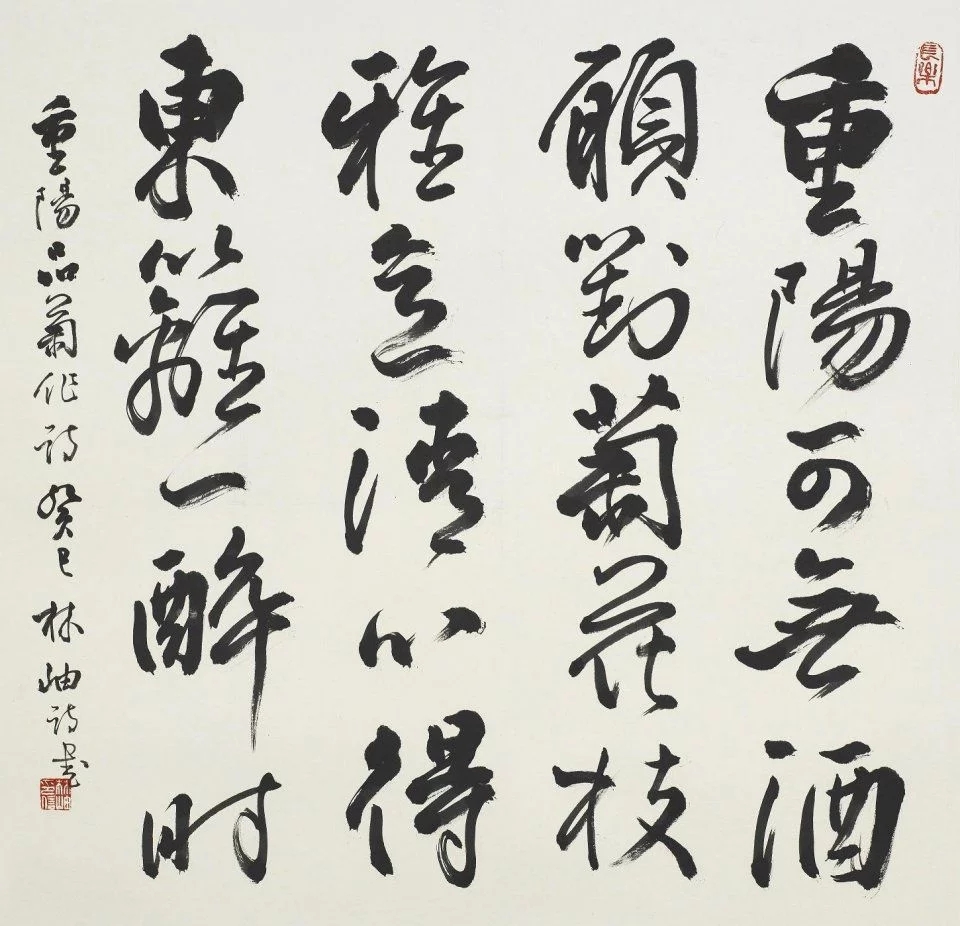 長樂
重陽可無酒
願對菊花枝
雅意清心得
東籬一醉时
重陽品菊作詩癸巳林岫詩書